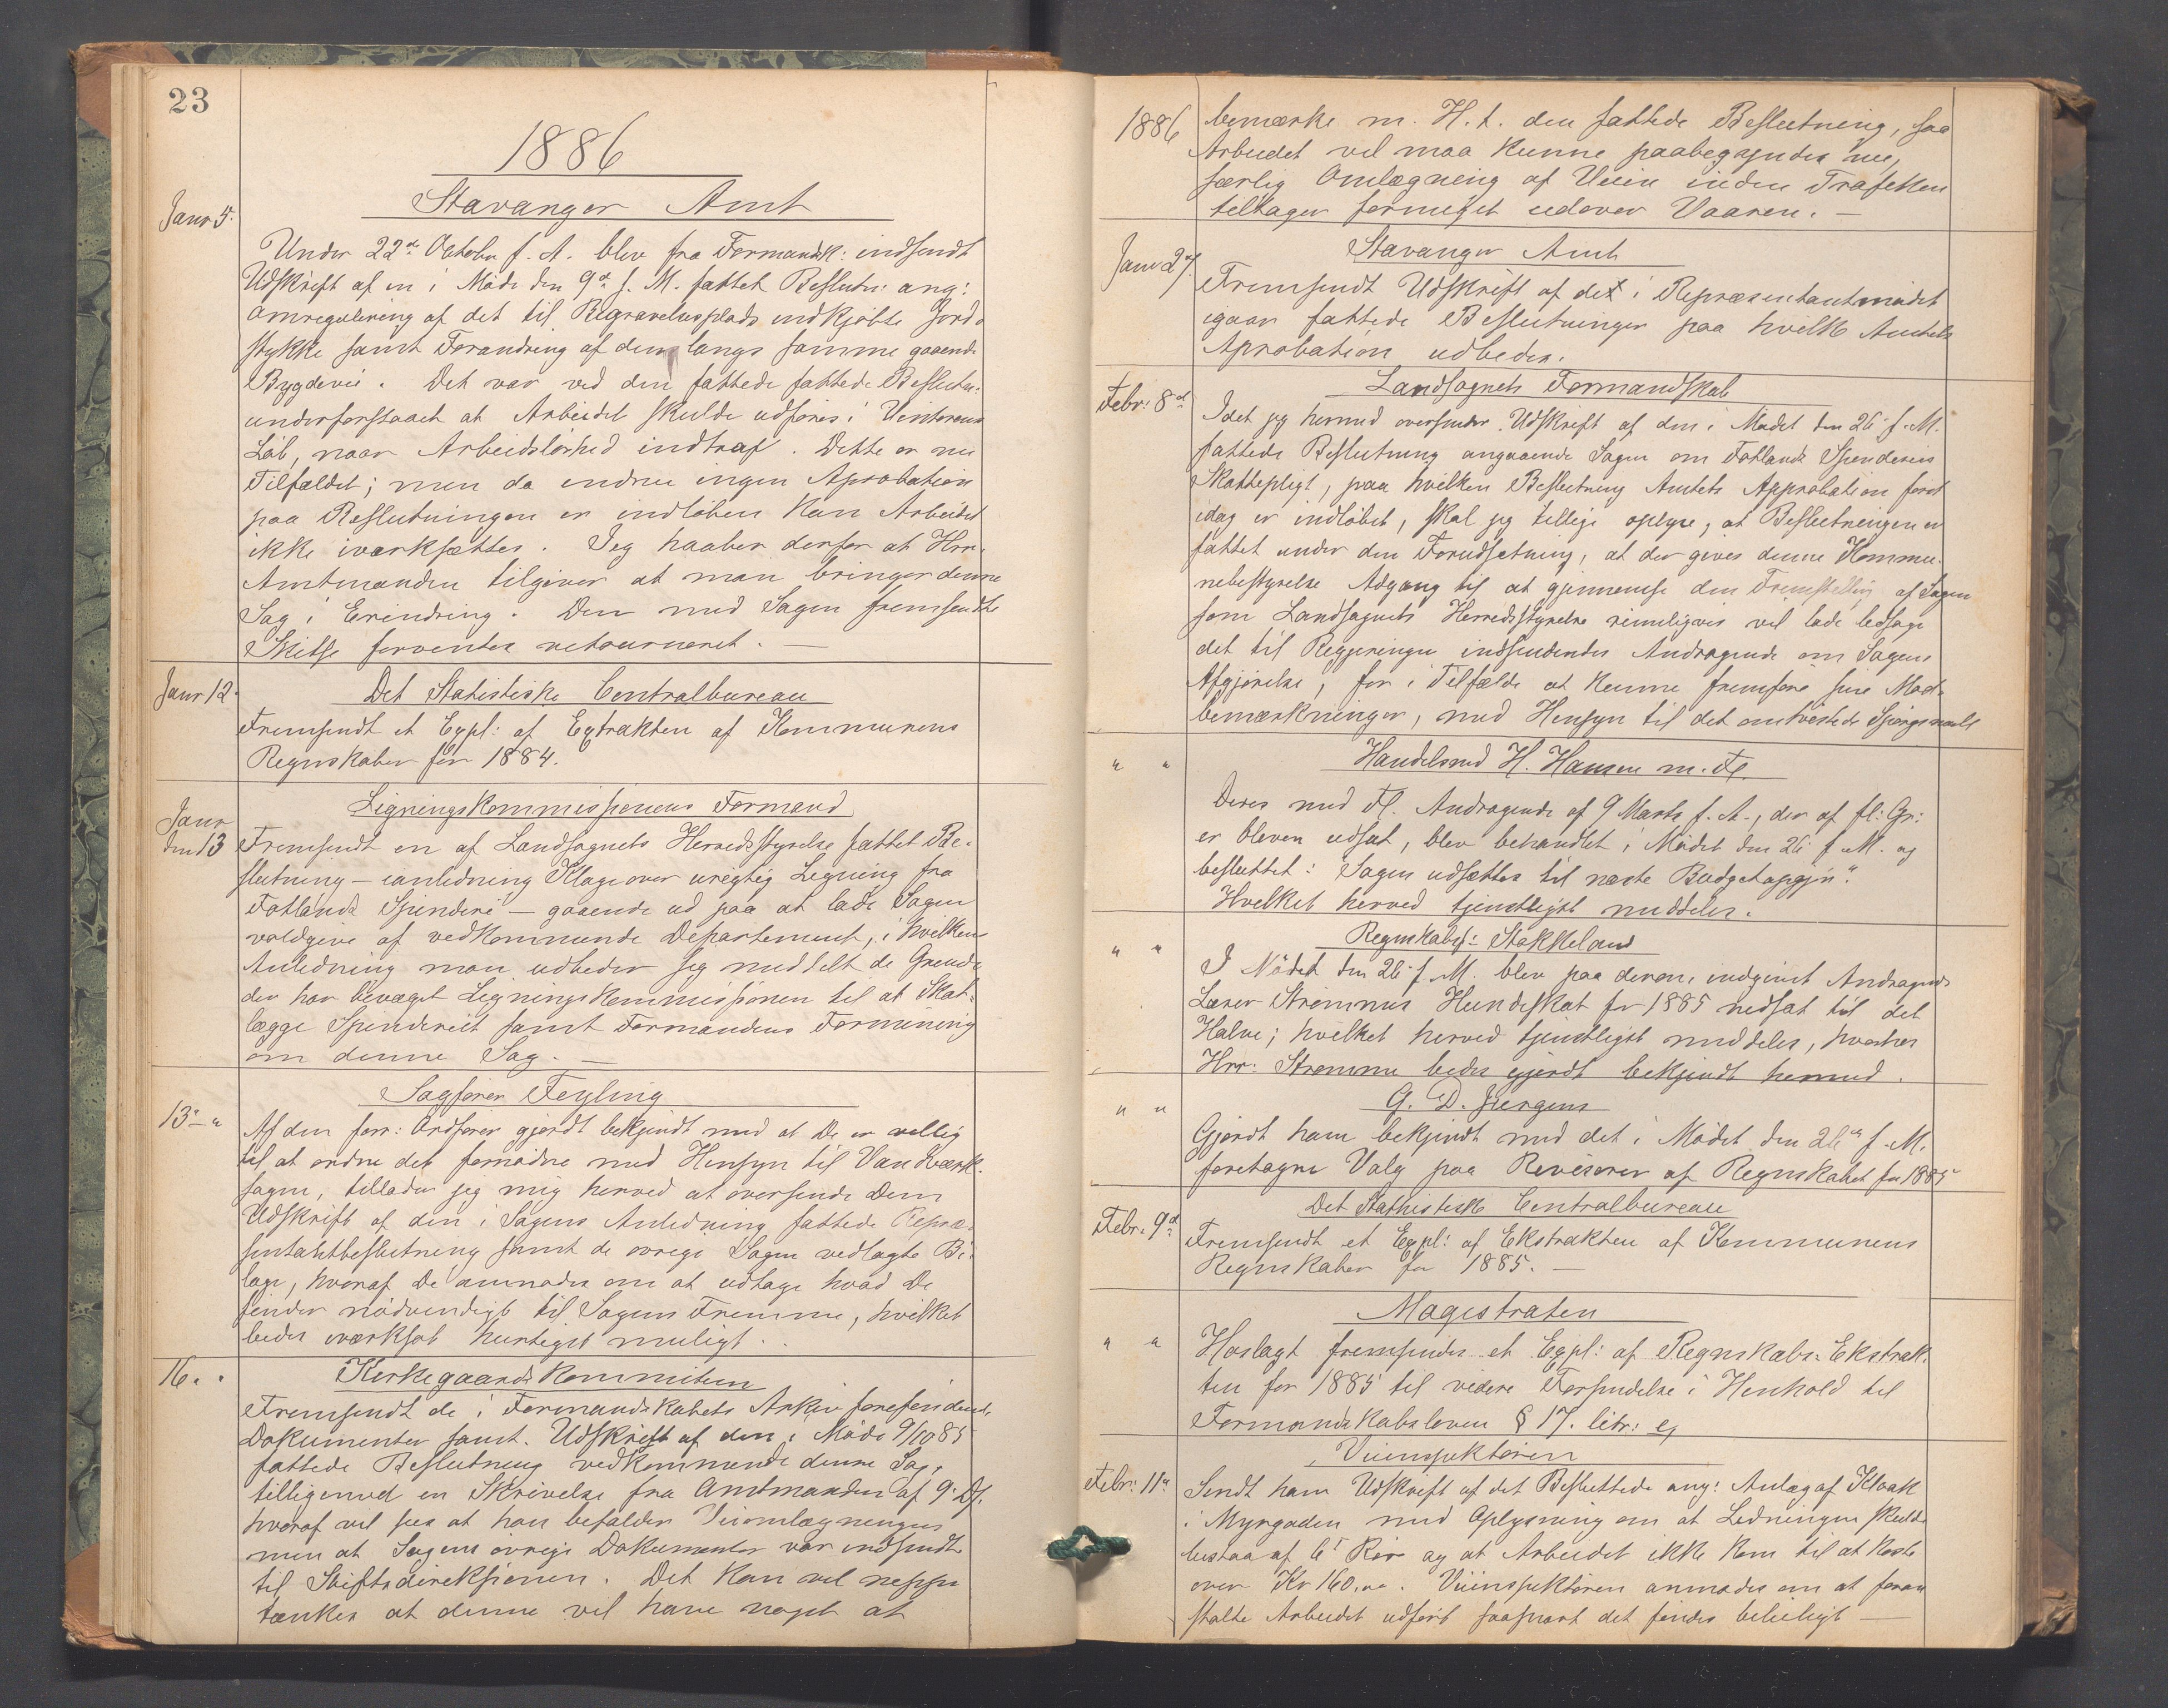 23
1886
Stavanger Amt
Janr 5.
Under 22de October f. A. blev fra Formandsk: indsendt
Udskrift af en i Møde den 9de s. M. fattet Beslutn: ang:
Omregulering af det til Begravelsesplads indkjøbte Jord-
stykke samt Forandring af den langs samme gaaende
Bygdevei. Det var ved den fattede fattede Beslutn:
underforstaaet at Arbeidet skulde udføres i Vinterens
Løb, naar Arbeidsløshed indtraf. Dette er nu
Tilfældet; men da endnu ingen Aprobation
paa Beslutningen er indløben kan Arbeidet
ikke iværksættes. Jeg haaber derfor at Hrr.
Amtmanden tilgiver at man bringer denne
Sag i Erindring. Den med Sagen fremsendte
Skitse forventes retourneret. —
Janr 12.
Det Statistiske Centralbureau
Fremsendt et Expl: af Extrakten af Kommunens
Regnskaber for 1884.
Janr
den 13
Ligningskommissionens Formand
Fremsendt en af Landsognets Herredsstyrelse fattet Be-
slutning – ianledning Klage over uregtig Ligning fra
Fotlands Spinderi – gaaende ud paa at lade Sagen
voldgive af vedkommende Departement, i hvilken
Anledning man udbeder sig meddelt de Grunde
der har bevæget Ligningskommissionen til at Skat-
lægge Spinderiet samt Formandens Formening
om denne Sag. —
13de "
Sagfører Feyling
Af den forr: Ordfører gjordt bekjendt med at De er villig
til at ordne det fornødne med Hensyn til Vandværk-
sagen, tillader jeg mig herved at oversende Dem
Udskrift af den i Sagens Anledning fattede Repræ-
sentantbeslutning samt de øvrige Sagen vedlagte Bi-
lage, hvoraf De anmodes om at udtage hvad De
finder nødvendigt til Sagens Fremme, hvilket
bedes iværksat hurtigst muligt.
16. "
Kirkegaardskommiteen
Fremsendt de i Formandskabets Arkiv forefindende
Dokumenter samt. Udskrift af den i Møde 9/10 85
fattede Beslutning vedkommende denne Sag,
tilligemed en Skrivelse fra Amtmanden af 9. ds.
hvoraf vil sees at han befalder Veiomlægningen
men at Sagens øvrige Dokumenter var indsendt
til Stiftsdireksionen. Det kan vel neppe
tænkes at denne vil have noget at
1886
bemærke m. H. t. den fattede Beslutning, saa
Arbeidet vel maa kunne paabegyndes nu,
særlig Omlægning af Veien inden Trafikken
tiltager formeget udover Vaaren. —
Janr 27.
Stavanger Amt
Fremsendt Udskrift af det i Repræsentantmødet
igaar fattede Beslutninger paa hvilke Amtets
Aprobation udbedes.
Febr: 8de
Landsognets Formandskab
Idet jeg hermed oversender Udskrift af den i Mødet den 26de f. M.
fattede Beslutning angaaende Sagen om Fotlands Spinderis
Skattepligt, paa hvilken Beslutning Amtets Approbation først
idag er indløbet, skal jeg tillige oplyse, at Beslutningen er
fattet under den Forudsetning, at der gives denne Kommu-
nebestyrelse Adgang til at gjennemse den Fremstelling af Sagen
som Landsognets Herredsstyrelse rimeligvis vil lade ledsage
det til Regjeringen indsendendes Andragende om Sagens
Afgjørelse, for i Tilfælde at kunne fremføre sine Mod-
bemærkninger, med Hensyn til det omtvistede Spørgsmaal
" "
Handelsmd H. Hansen m. Fl.
Deres med Fl. Andragende af 9 Marts f. A., der af fl: Gr:
er bleven udsat, blev behandlet i Mødet den 26de f. M. og
besluttet: "Sagen udsættes til næste Budgetopgjør".
Hvilket herved tjenstligst meddeles.
" "
Regnskabsf: Stokkeland
I Mødet den 26de f. M. blev paa derom indgivet Andragende
Lærer Strømmes Hundeskat for 1885 nedsat til det
Halve; hvilket herved tjenstligst meddeles, hvorhos
Hrr: Strømme bedes gjordt bekjendt hermed.
" "
G. D. Jürgens
Gjordt ham bekjendt med det i Mødet den 26de f. M.
foretagne Valg paa Revisorer af Regnskabet for 1885
Febr: 9de
Det Stathistiske Centralbureau
Fremsendt et Expl: af Ekstrakten af Kommunens
Regnskaber for 1885. —
" "
Magistraten
Hoslagt fremsendes et Expl: af Regnskabs-Ekstrak-
ten for 1885 til videre Forsendelse i Henhold til
Formandskabsloven § 17. litr: e,
Febr: 11te
Veiinspektøren
Sendt ham Udskrift af det Besluttede ang: Anlæg af Kloak
i Myrgaden med Oplysning om at Ledningen skulde
bestaa af 6" Rør og at Arbeidet ikke kom til at koste
over Kr 160,00. Veiinspektøren anmodes om at foran-
stalte Arbeidet udført saasnart det findes beleiligt —